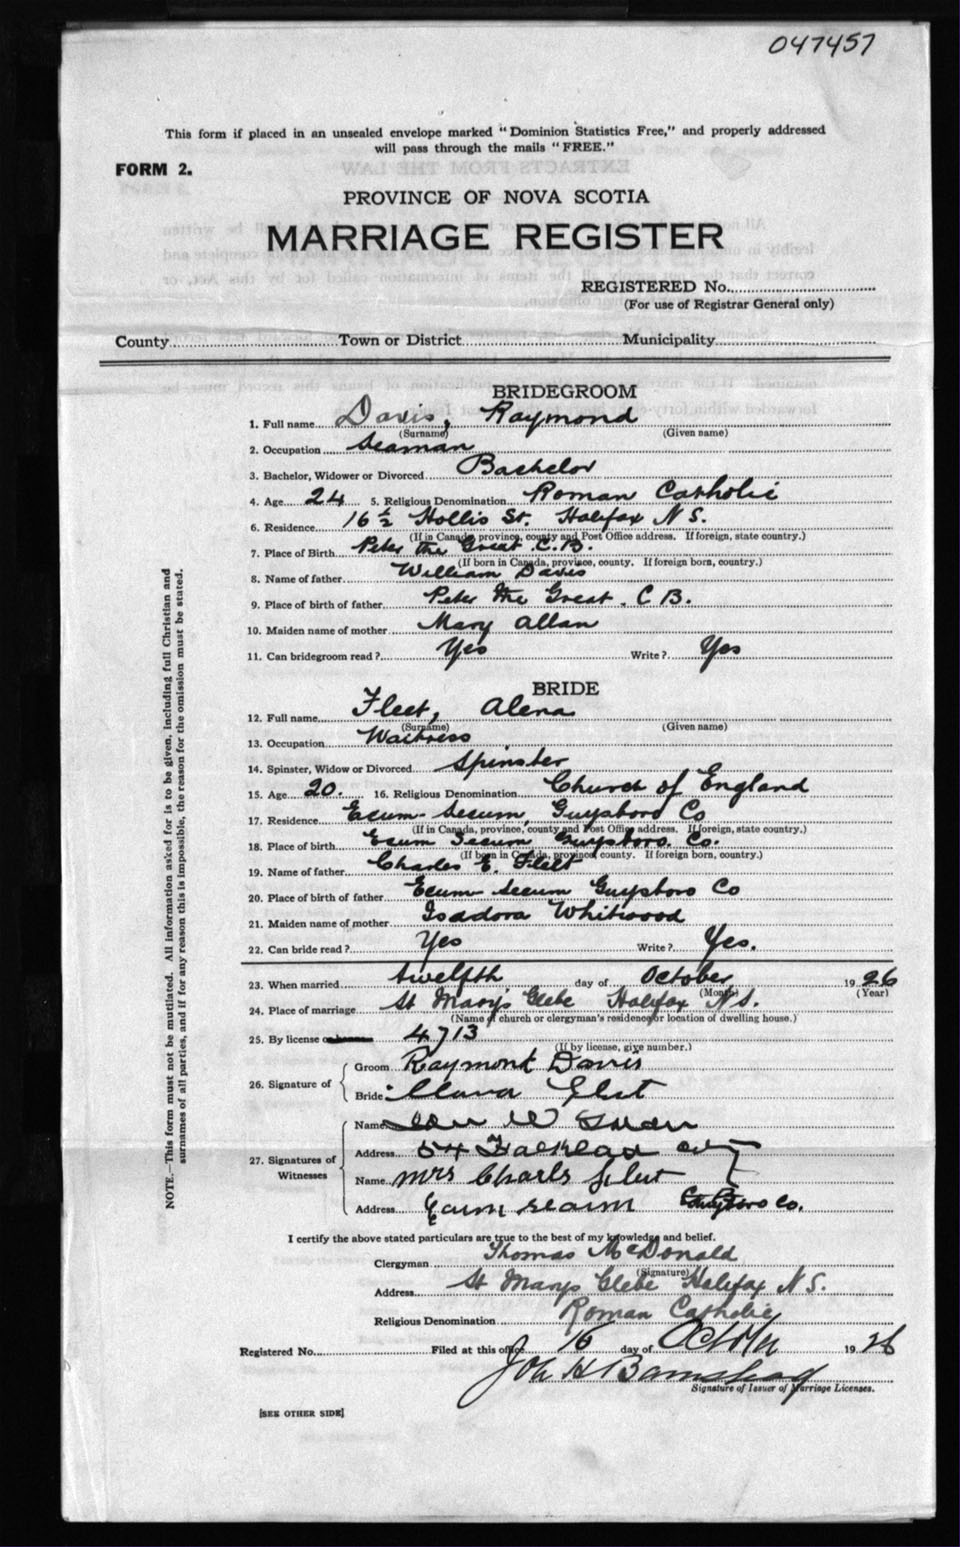 047457
This form if placed in an unsealed envelope marked "Dominion Statistics Free," and properly addressed
will pass through the mails "FREE."
FORM 2.
PROVINCE OF NOVA SCOTIA
MARRIAGE REGISTER
REGISTERED No.
(For use of Registrar General only)
County Town or District Municipality
BRIDEGROOM
1. Full name Davis, Raymond
(Surname) (Given name)
2. Occupation Seaman
3. Bachelor, Widower or Divorced Bachelor
4. Age 24 5. Religious Denomination Roman Catholic
6. Residence 16 1/2 Hollis St. Halifax N S.
(If in Canada, province, county and Post Office address. If foreign, state country.)
7. Place of Birth Peter the Great C.B.
(If born in Canada, province, county. If foreign born, country.)
8. Name of father William Davis
9. Place of birth of father Peter the Great. C B.
10. Maiden name of mother Mary Allan
11. Can bridegroom read? Yes Write? Yes
BRIDE
12. Full name Fleet, Alena
(Surname) (Given name)
13. Occupation Waitress
14. Spinster, Widow or Divorced Spinster
15. Age 20. 16. Religious Denomination Church of England
17. Residence Ecum-Secum, Guysboro Co
(If in Canada, province, county and Post Office address. If foreign, state country.)
18. Place of birth Ecum Secum Guysboro. Co.
(If born in Canada, province, county. If foreign born, country.)
19. Name of father Charles E. Fleet
20. Place of birth of father Ecum Secum Guysboro Co
21. Maiden name of mother Isadora Whitwood
22. Can bride read? Yes Write? Yes.
23. When married twelfth day of October 1926
(Month) (Year)
24. Place of marriage St Mary's Glebe Halifax N S.
(Name of church or clergyman's residence or location of dwelling house.)
25. By license 4713
(If by license, give number.)
26. Signature of
Groom Raymont Davis
Bride
27. Signatures of Witnesses
Name W
Address 54
Name Mrs Charls Fleet
Address Guysboro Co.
I certify the above stated particulars are true to the best of my knowledge and belief.
Clergyman Thomas McDonald
(Signature)
Address St Marys Glebe Halifax N S.
Religious Denomination Roman Catholic
Registered No. Filed at this office 16 day of 1926
Signature of Issuer of Marriage Licenses.
[SEE OTHER SIDE]
NOTE.—This form must not be mutilated. All information asked for is to be given, including full Christian and
surnames of all parties, and if for any reason this is impossible, the reason for the omission must be stated.